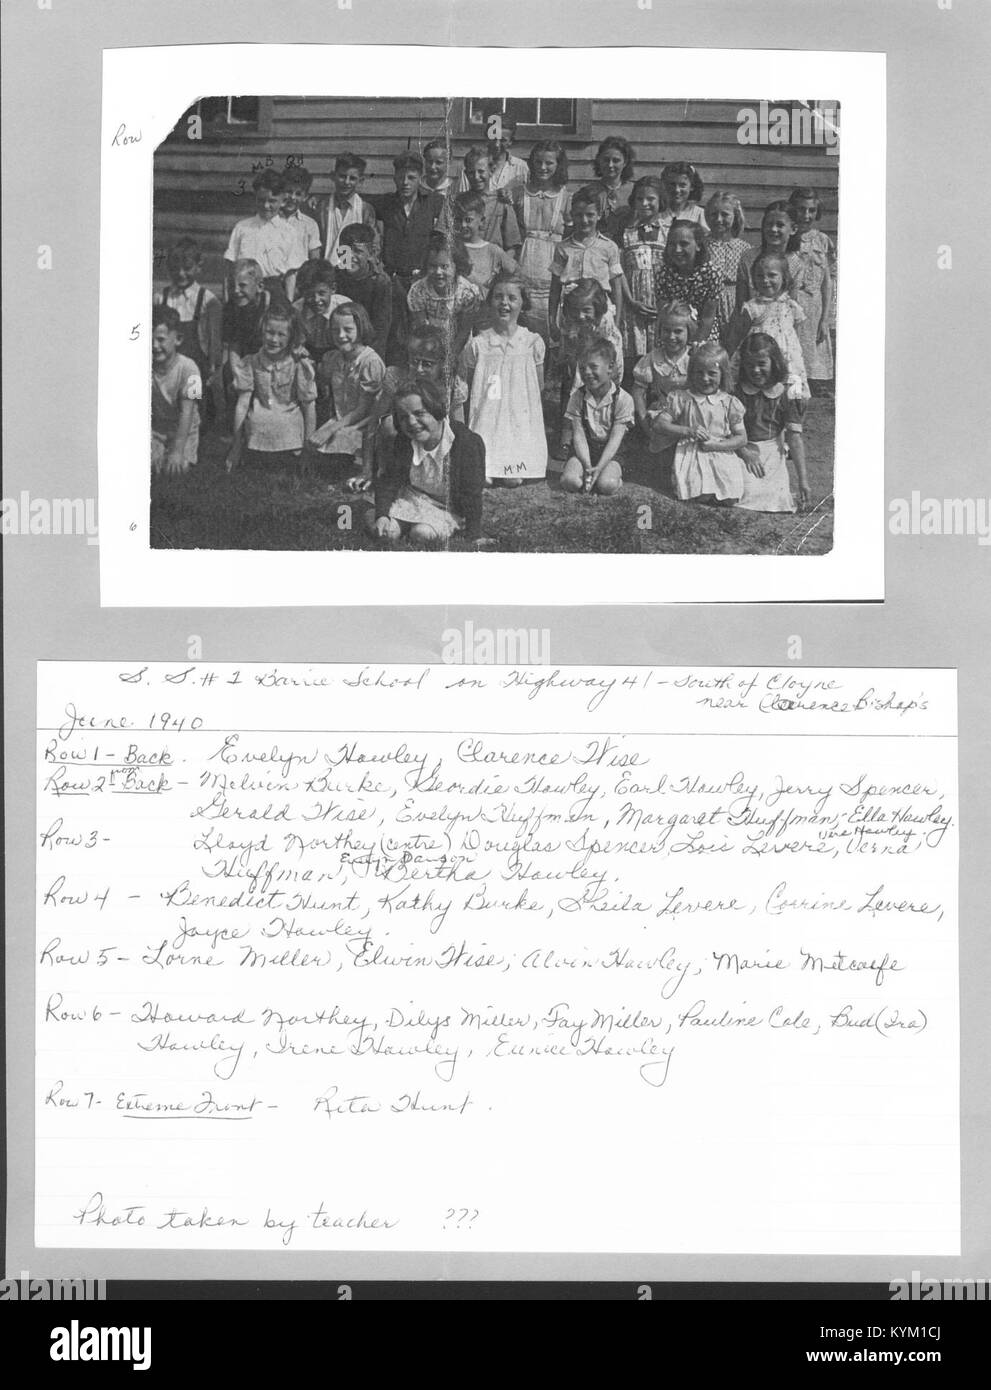 Row
3
MB
GH
1
4
5
M.M
6
S. S. # 1 Barrie School on Highway 41 - South of Cloyne
near Clarence Bishop's
June 1940
Row 1 - Back. Evelyn Hawley, Clarence Wise
Row 2 from Back - Melvin Burke, Geordie Hawley, Earl Hawley, Jerry Spencer,
Gerald Wise, Evelyn Huffman, Margaret Huffman, Ella Hawley.
Vera Hawley.
Row 3 - Lloyd Northey (centre) Douglas Spencer, Lois Levere, Verna
Evelyn Dawson
Huffman, Bertha Hawley.
Row 4 - Benedict Hunt, Kathy Burke, Sheila Levere, Corrine Levere,
Joyce Hawley.
Row 5 - Lorne Miller, Elwin Wise, Alvin Hawley, Marie Metcalfe
Row 6 - Howard Northey, Dilys Miller, Fay Miller, Pauline Cole, Bud (Ira)
Hawley, Irene Hawley, Eunice Hawley
Row 7 - Extreme Front - Rita Hunt.
Photo taken by teacher ???
alamy
alamy
Image ID: KYM1CJ
www.alamy.com